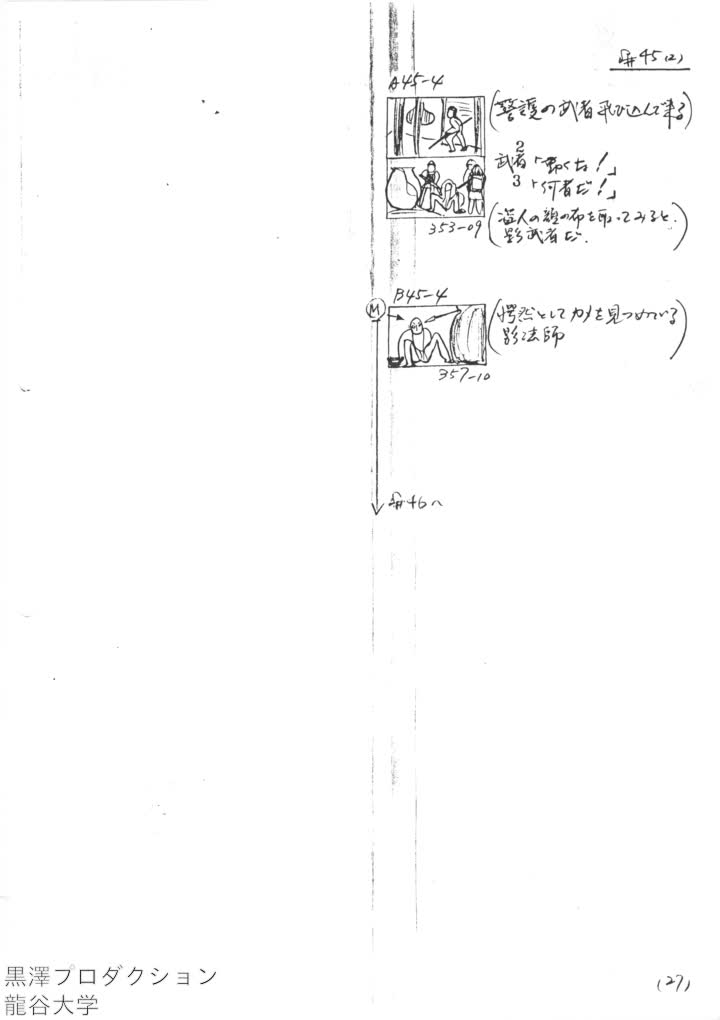 #45(2)
A45-4
(警護の武者飛び込んで来る)
武者2「動くな!」
3「何者だ!」
(盗人の顔の布を取ってみると、
影武者だ.)
353-09
B45-4
M
(愕然としてカメを見つめている
影法師)
357-10
#46へ
(27)
黒澤プロダクション
龍谷大学